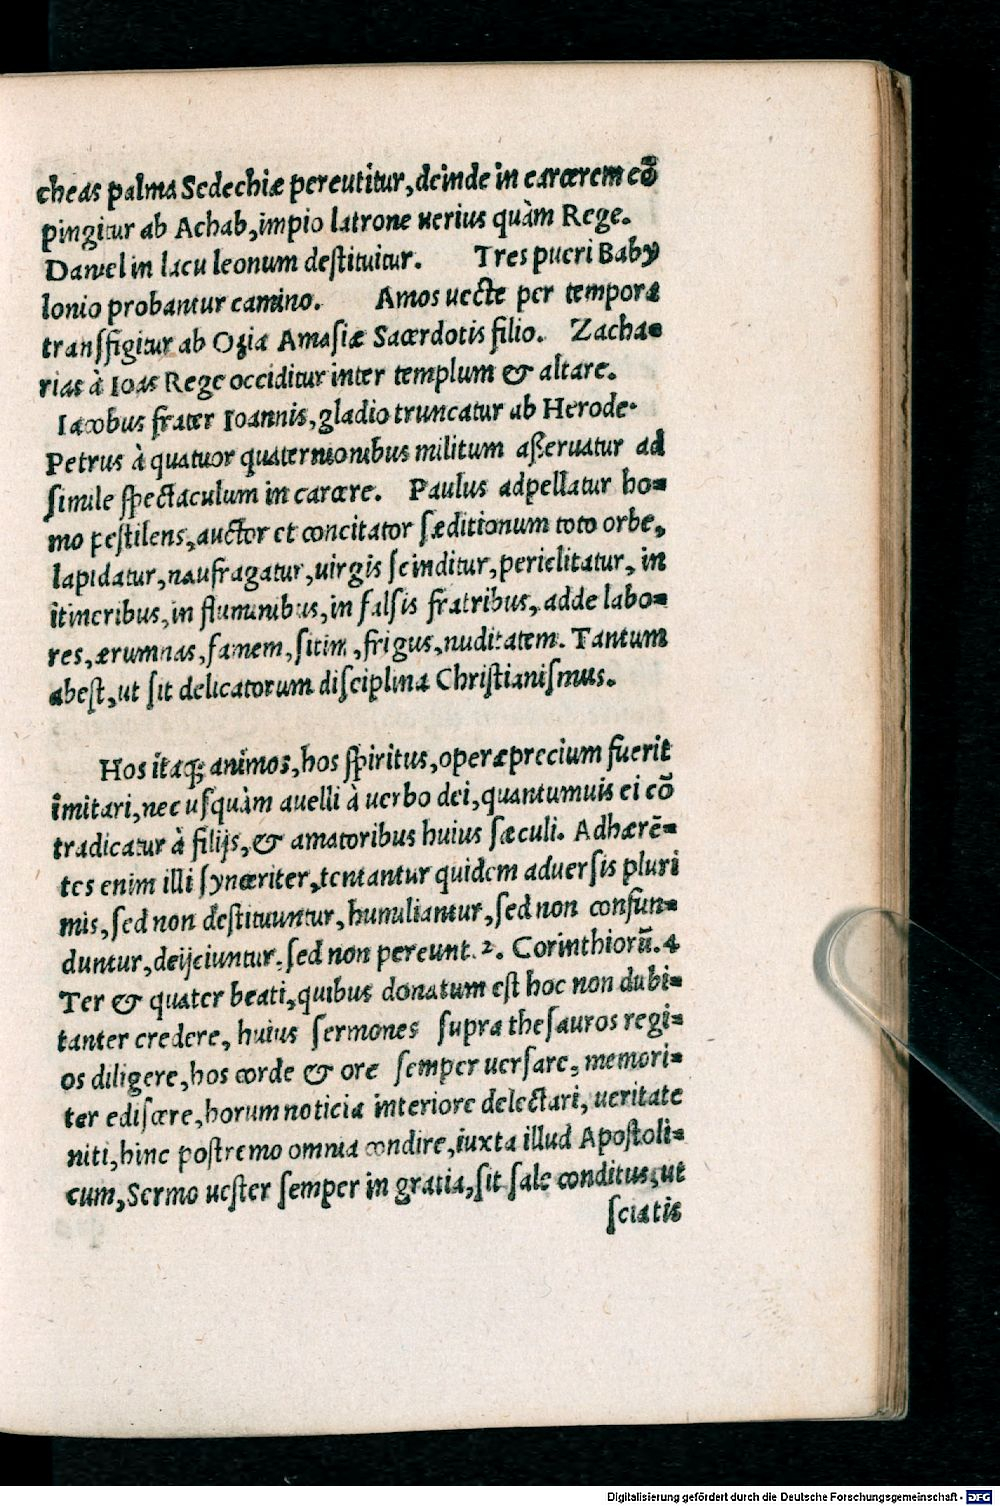 cheas palma Sedechiæ percutitur, deinde in carcerem cō
pingitur ab Achab, impio latrone uerius quàm Rege.
Daniel in lacu leonum destituitur. Tres pueri Baby
lonio probantur camino. Amos uecte per tempora
transfigitur ab Ozia Amasiæ Sacerdotis filio. Zacha-
rias à Ioas Rege occiditur inter templum & altare.
Iacobus frater Ioannis, gladio truncatur ab Herode.
Petrus à quatuor quaternionibus militum aßeruatur ad
simile spectaculum in carcere. Paulus adpellatur ho-
mo pestilens, auctor et concitator sæditionum toto orbe,
lapidatur, naufragatur, uirgis scinditur, periclitatur, in
itineribus, in fluminibus, in falsis fratribus, adde labo-
res, ærumnas, famem, sitim, frigus, nuditatem. Tantum
abest, ut sit delicatorum disciplina Christianismus.
Hos itaq; animos, hos spiritus, operæprecium fuerit
imitari, nec usquàm auelli à uerbo dei, quantumuis ei cō
tradicatur à filijs, & amatoribus huius sæculi. Adhærē-
tes enim illi synceriter, tentantur quidem aduersis pluri
mis, sed non destituuntur, humiliantur, sed non confun-
duntur, deijciuntur, sed non pereunt. 2. Corinthiorū. 4
Ter & quater beati, quibus donatum est hoc non dubi-
tanter credere, huius sermones supra thesauros regi-
os diligere, hos corde & ore semper uersare, memori-
ter ediscere, horum noticia interiore delectari, ueritate
niti, hinc postremo omnia condire, iuxta illud Apostoli-
cum, Sermo uester semper in gratia, sit sale conditus, ut
sciatis
Digitalisierung gefördert durch die Deutsche Forschungsgemeinschaft - DFG